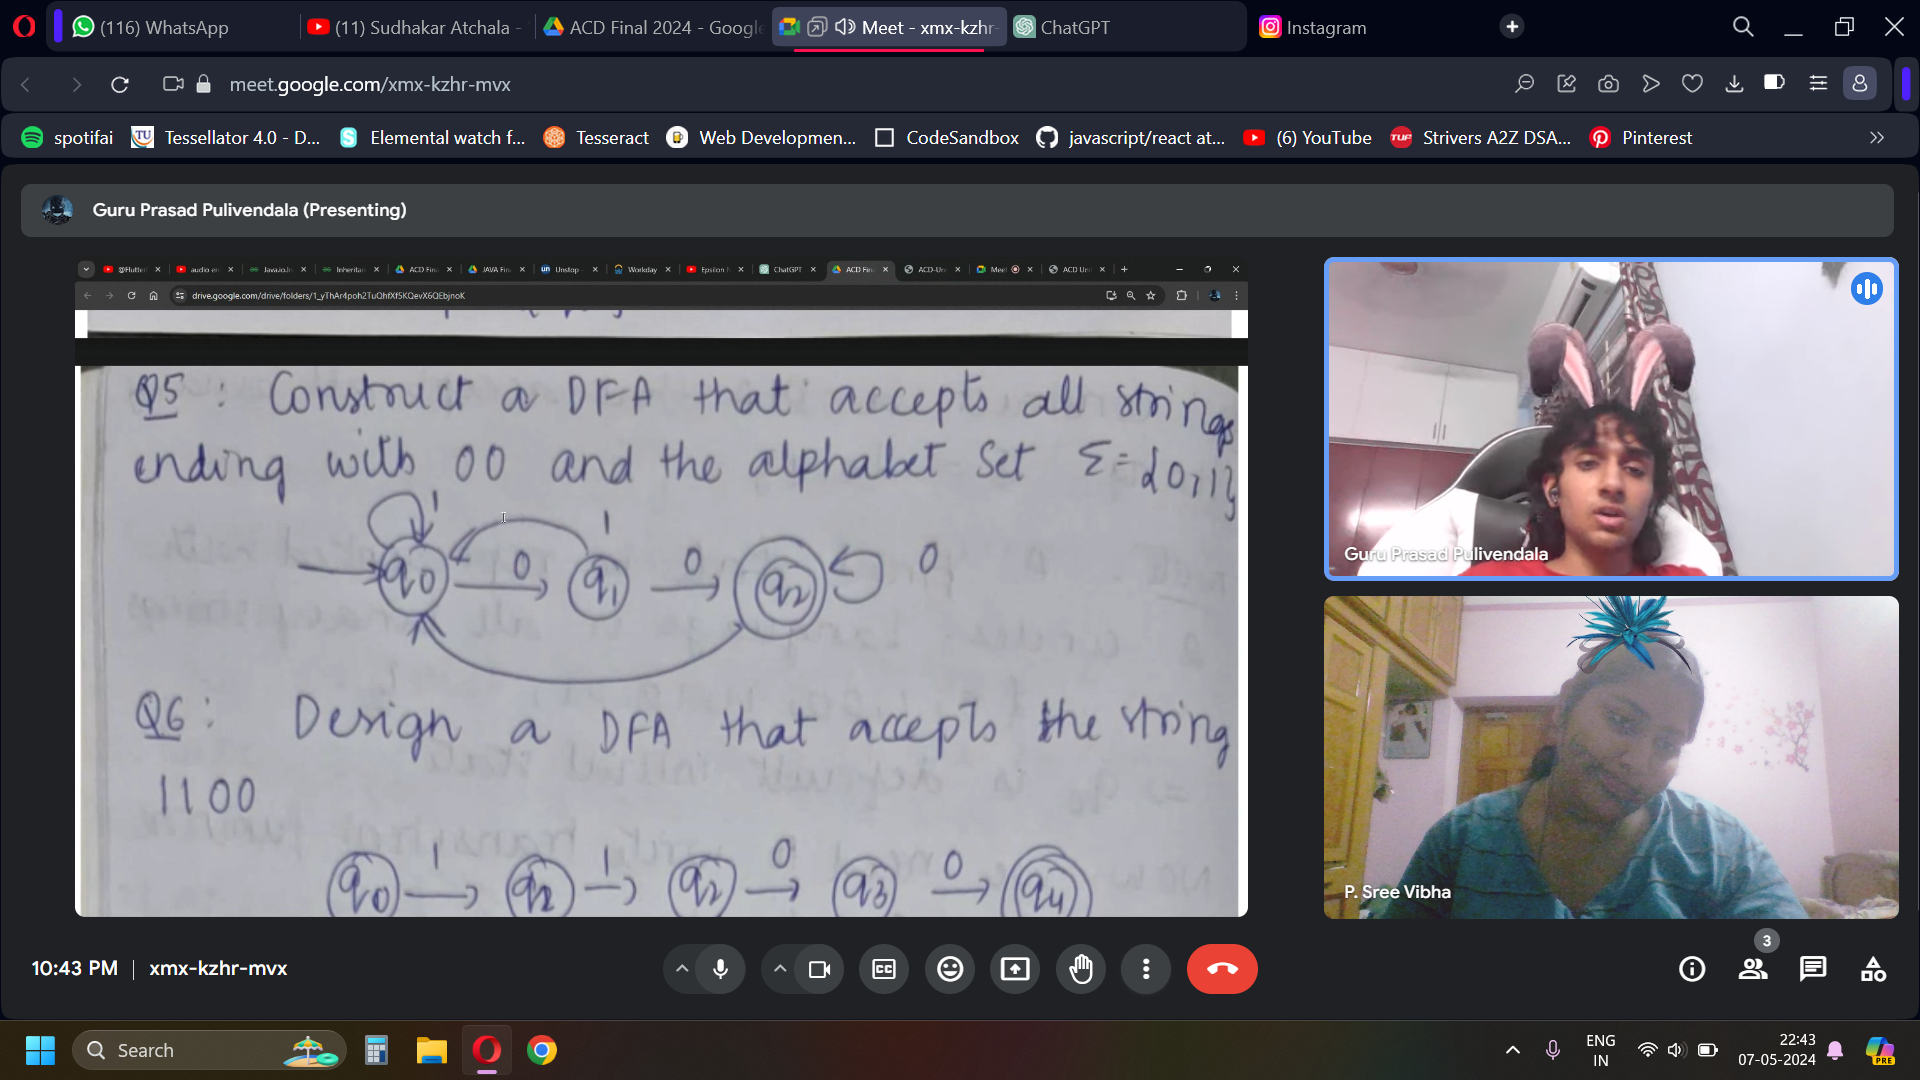 (116) WhatsApp
(11) Sudhakar Atchala -
ACD Final 2024 - Google
Meet - xmx-kzhr-
ChatGPT
Instagram
meet.google.com/xmx-kzhr-mvx
spotifai
Tessellator 4.0 - D...
Elemental watch f...
Tesseract
Web Developmen...
CodeSandbox
javascript/react at...
(6) YouTube
Strivers A2Z DSA...
Pinterest
Guru Prasad Pulivendala (Presenting)
@Flutter
audio en
Java.io.In
Inheritan
ACD Fin
JAVA Fin
Unstop -
Workday
Epsilon N
ChatGPT
ACD Fin
ACD-Un
Meet
ACD Uni
drive.google.com/drive/folders/1_yThAr4poh2TuQhfXf5KQevX6QEbjnoK
Q5 : Construct a DFA that accepts all strings
ending with 00 and the alphabet set Σ={0,1}
1
1
q0 0 q1 0 q2 0
Q6 : Design a DFA that accepts the string
1100
1 1 0 0
q0 q2 q2 q3 q4
Guru Prasad Pulivendala
P. Sree Vibha
10:43 PM | xmx-kzhr-mvx
3
Search
ENG
IN
22:43
07-05-2024
PRE